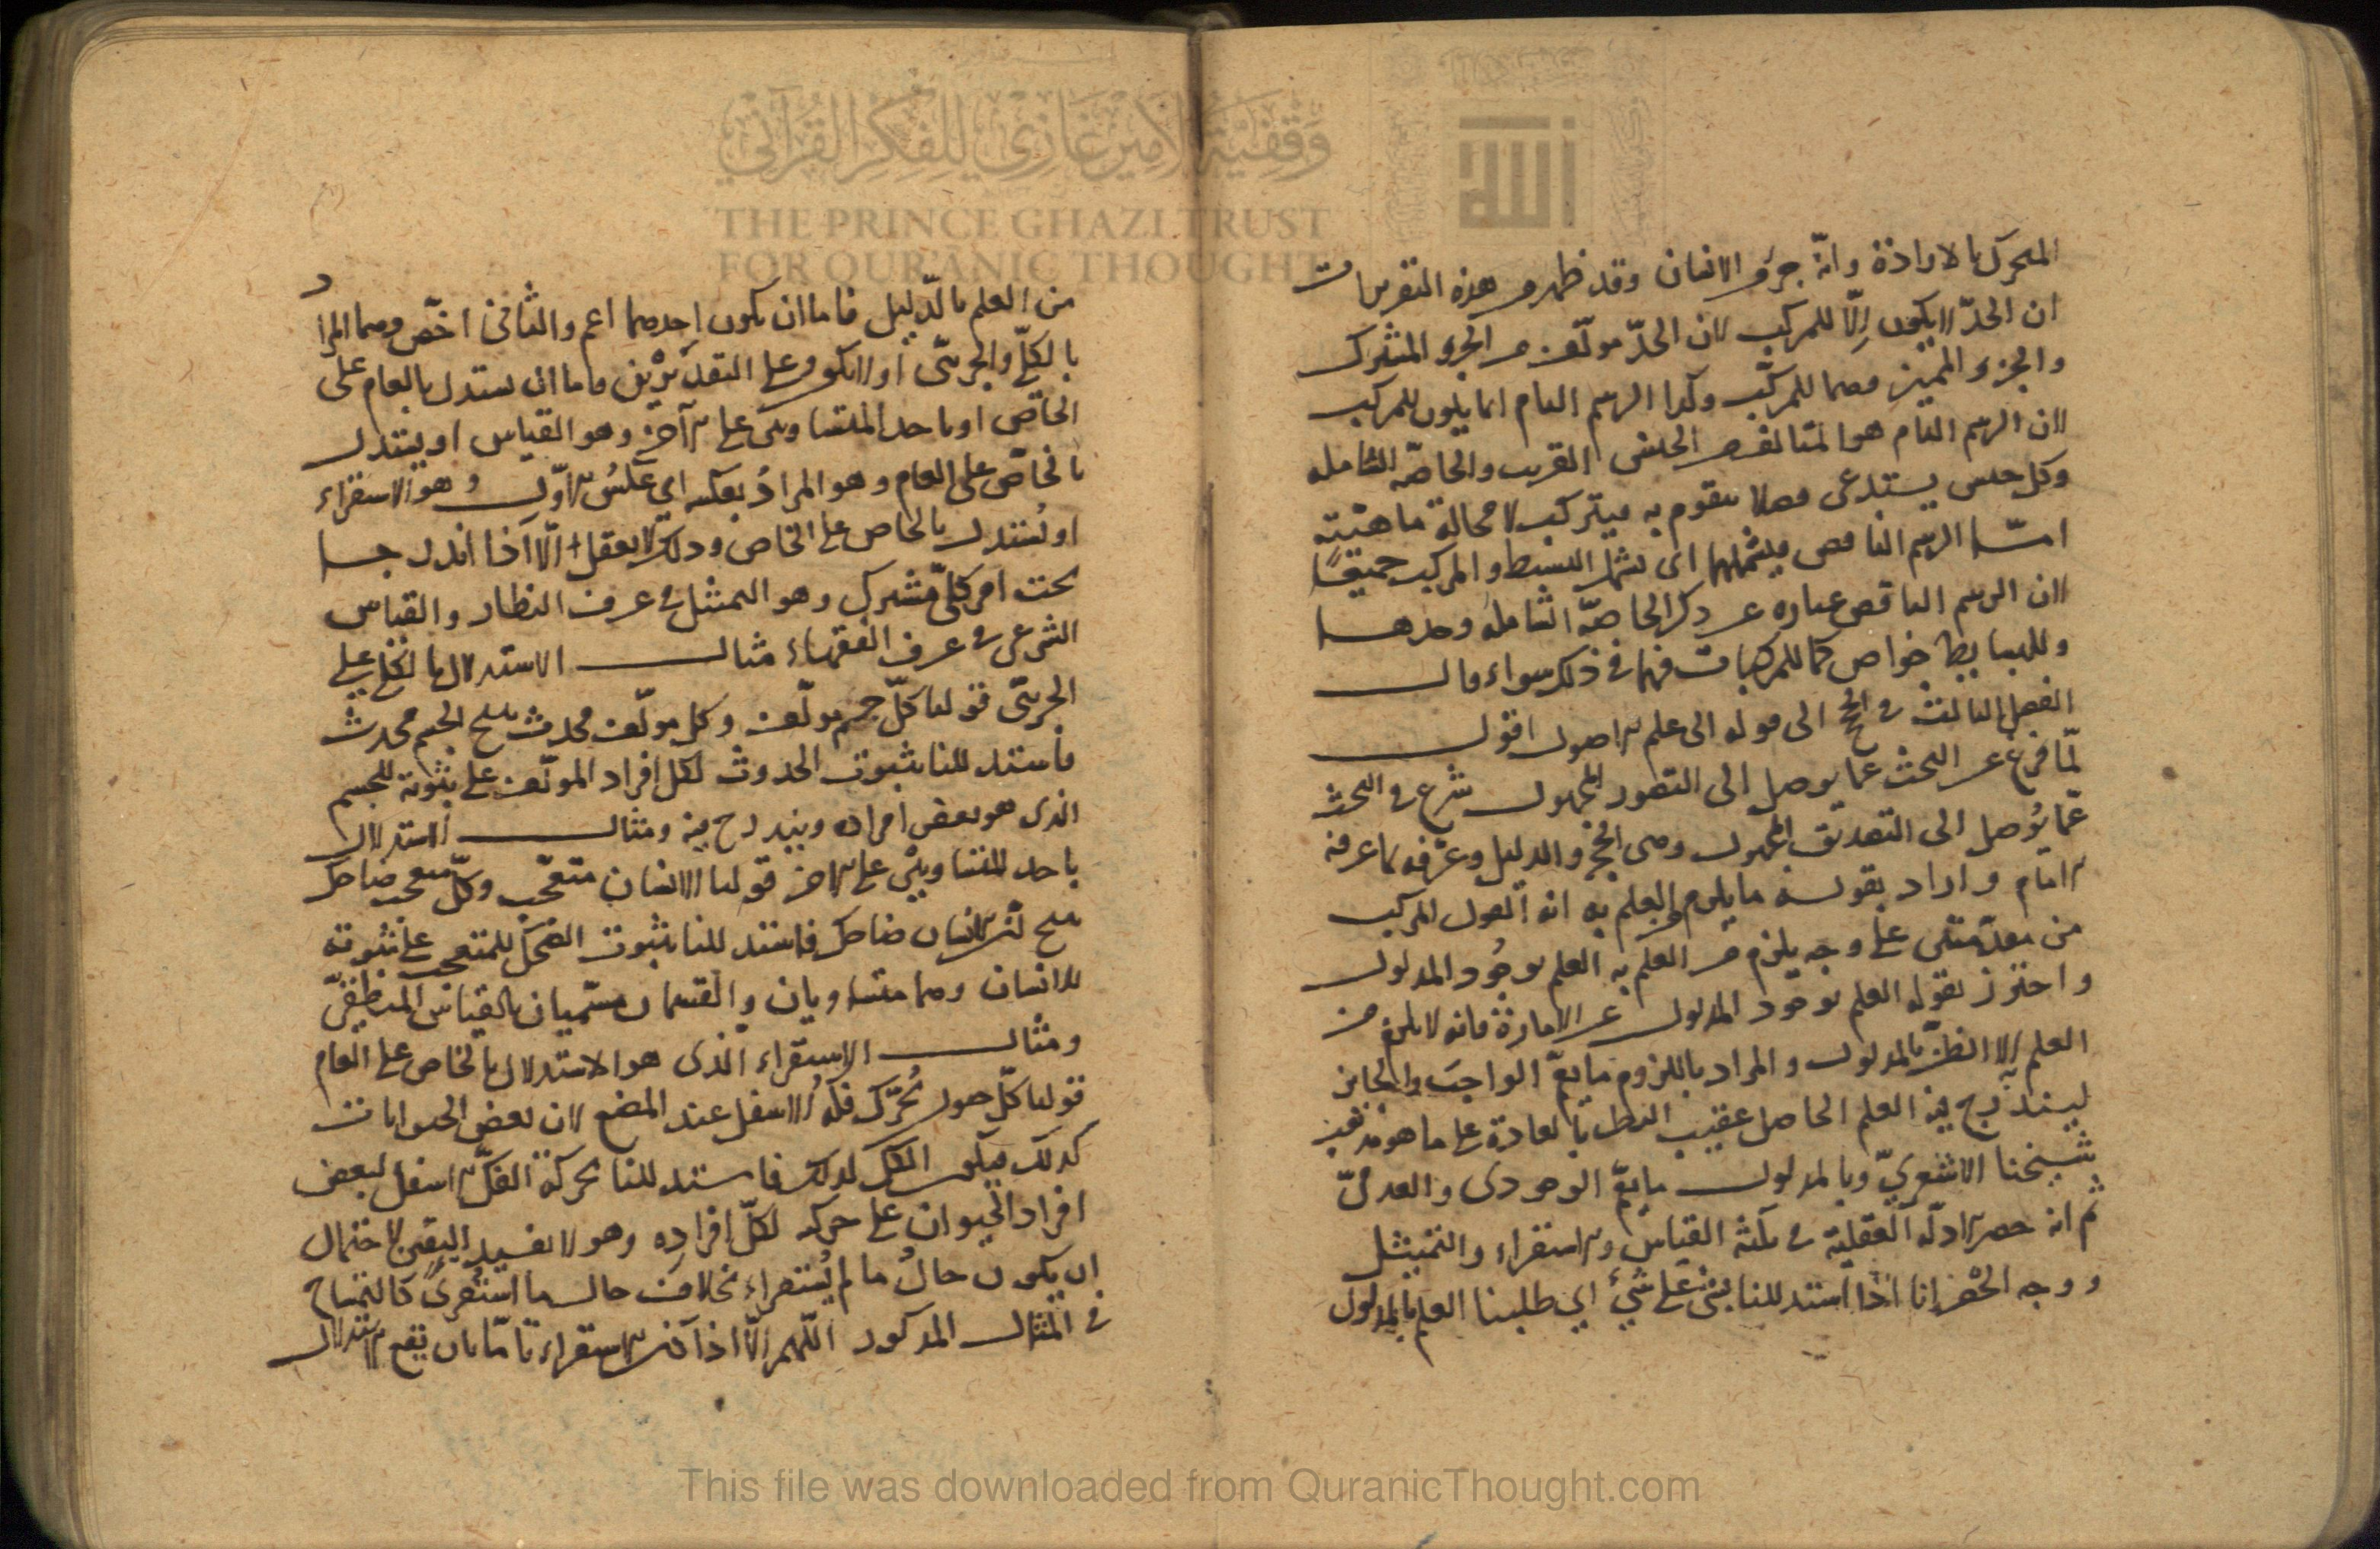 وقفية الأمير غازي للفكر القرآني
THE PRINCE GHAZI TRUST
FOR QUR'ANIC THOUGHT
الله
المتحرك بالارادة وانه جزؤ الانسان وقد ظهر من هذه التقريرات
ان الحدّ لا يكون الّا للمركب لان الحدّ مولّف من الجزء المشترك
والجزء المميز وهما للمركّب وكذا الرسم التام انما يكون للمركب
لان الرسم التام هو المتالف من الجنس القريب والخاصّه الشامله
وكل جنس يستدعى فصلا يتقوم به فيتركب لا محالة ماهيته
امّـا الرسم الناقص فيشملهما اى يشمل البسيط والمركب جميعًا
لان الرسم الناقص عباره عن ذكر الخاصّه الشاملة وحدها
وللبسايط خواص كما للمركبات فهما فى ذلك سواء قال
الفصل الثالث فى الحجج الى قوله الى علم الاصول اقول
لمّا فرغ عن البحث عما يوصل الى التصور المجهول شرع فى البحث
عمّا يُوصل الى التصديق المجهول وهى الحجج والدليل وعرّفه بما عرفه
الامام واراد بقوله ما يلزم من العلم به انه القول المركب
من مقدّمتين على وجه يلزم من العلم به العلم بوجُود المدلول
واحترز بقوله العلم بوجود المدلول عن الامارة فانه لا يلزم من
العلم بها الا الظنّ بالمدلول والمراد باللزوم ما يعمّ الواجب والجايز
ليندرج فيه العلم الحاصل عقيب النظر بالعادة على ما هو مذهب
شيخنا الاشعريّ وبالمدلول ما يعمّ الوجودى والعدمىّ
ثم انه حصر الادلّه العقلية فى ثلثه القياس والاستقراء والتمثيل
ووجه الحصر انا اذا استدللنا بشئ على شئ اى طلبنا العلم بالمدلول
من العلم بالدّليل فاما ان يكون احدهما اعم والثانى اخصّ وهما المراد
بالكلّى والجزئىّ او لا يكون وعلى التقديرين فاما ان يستدل بالعام على
الخاصّ او باحد المتساويين على الآخر وهو القياس او يستدل
بالخاصّ على العام وهو المرادُ بعكسه اى عكسُ الاوّل وهو الاستقراء
او يُستدل بالخاص على الخاص وذلك لا يعقل الّا اذا اندرجا
تحت امر كلىّ مشترك وهو التمثيل فى عرف النظار والقياس
الشرعى فى عرف الفقهاء مثال الاستدلال بالكلى على
الجزئىّ قولنا كلّ جسم مولّف وكل مولّف محدث ينتج كل جسم محدث
فاستدللنا بثبوت الحدوث لكل افراد المولّف على ثبوته للجسم
الذى هو بعض افراده ويندرج فيه ومثال الاستدلال
باحد المتساويين على الاخر قولنا الانسان متعجّب وكلّ متعجب ضاحك
ينتج ان الانسان ضاحك فاستدللنا بثبوت الضحك للمتعجب على ثبوته
للانسان وهما متساويان والقسمان مسمّيان بالقياس المنطقىّ
ومثال الاستقراء الّذى هو الاستدلال بالخاص على العام
قولنا كلّ حيوان يُحرّك فكّه الاسفل عند المضغ لان بعض الحيوانات
كذلك فيكون الكل كذلك فاستدللنا بحركة الفكّ الاسفل لبعض
افراد الحيوان على حركه لكلّ افراده وهو لا يفيد اليقين لاحتمال
ان يكون حالُ ما لم يُستقراء بخلاف حال ما استُقرئ كالتمساح
فى المثال المذكور اللّهم الّا اذا كان الاستقراء تامّا بان يقع الاستدلال
This file was downloaded from QuranicThought.com